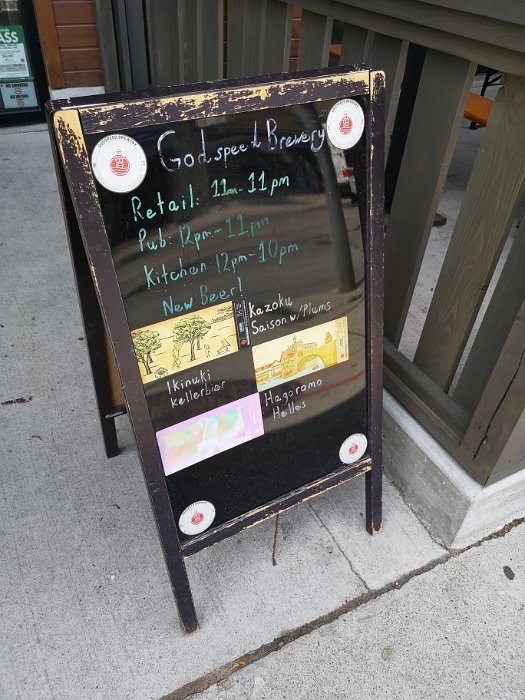 Godspeed Brewery
Retail: 11am - 11pm
Pub: 12pm - 11pm
Kitchen 12pm - 10pm
New Beer!
Kazoku
Saison w/ Plums
Ikinuki
Kellerbier
Hagoromo
Helles